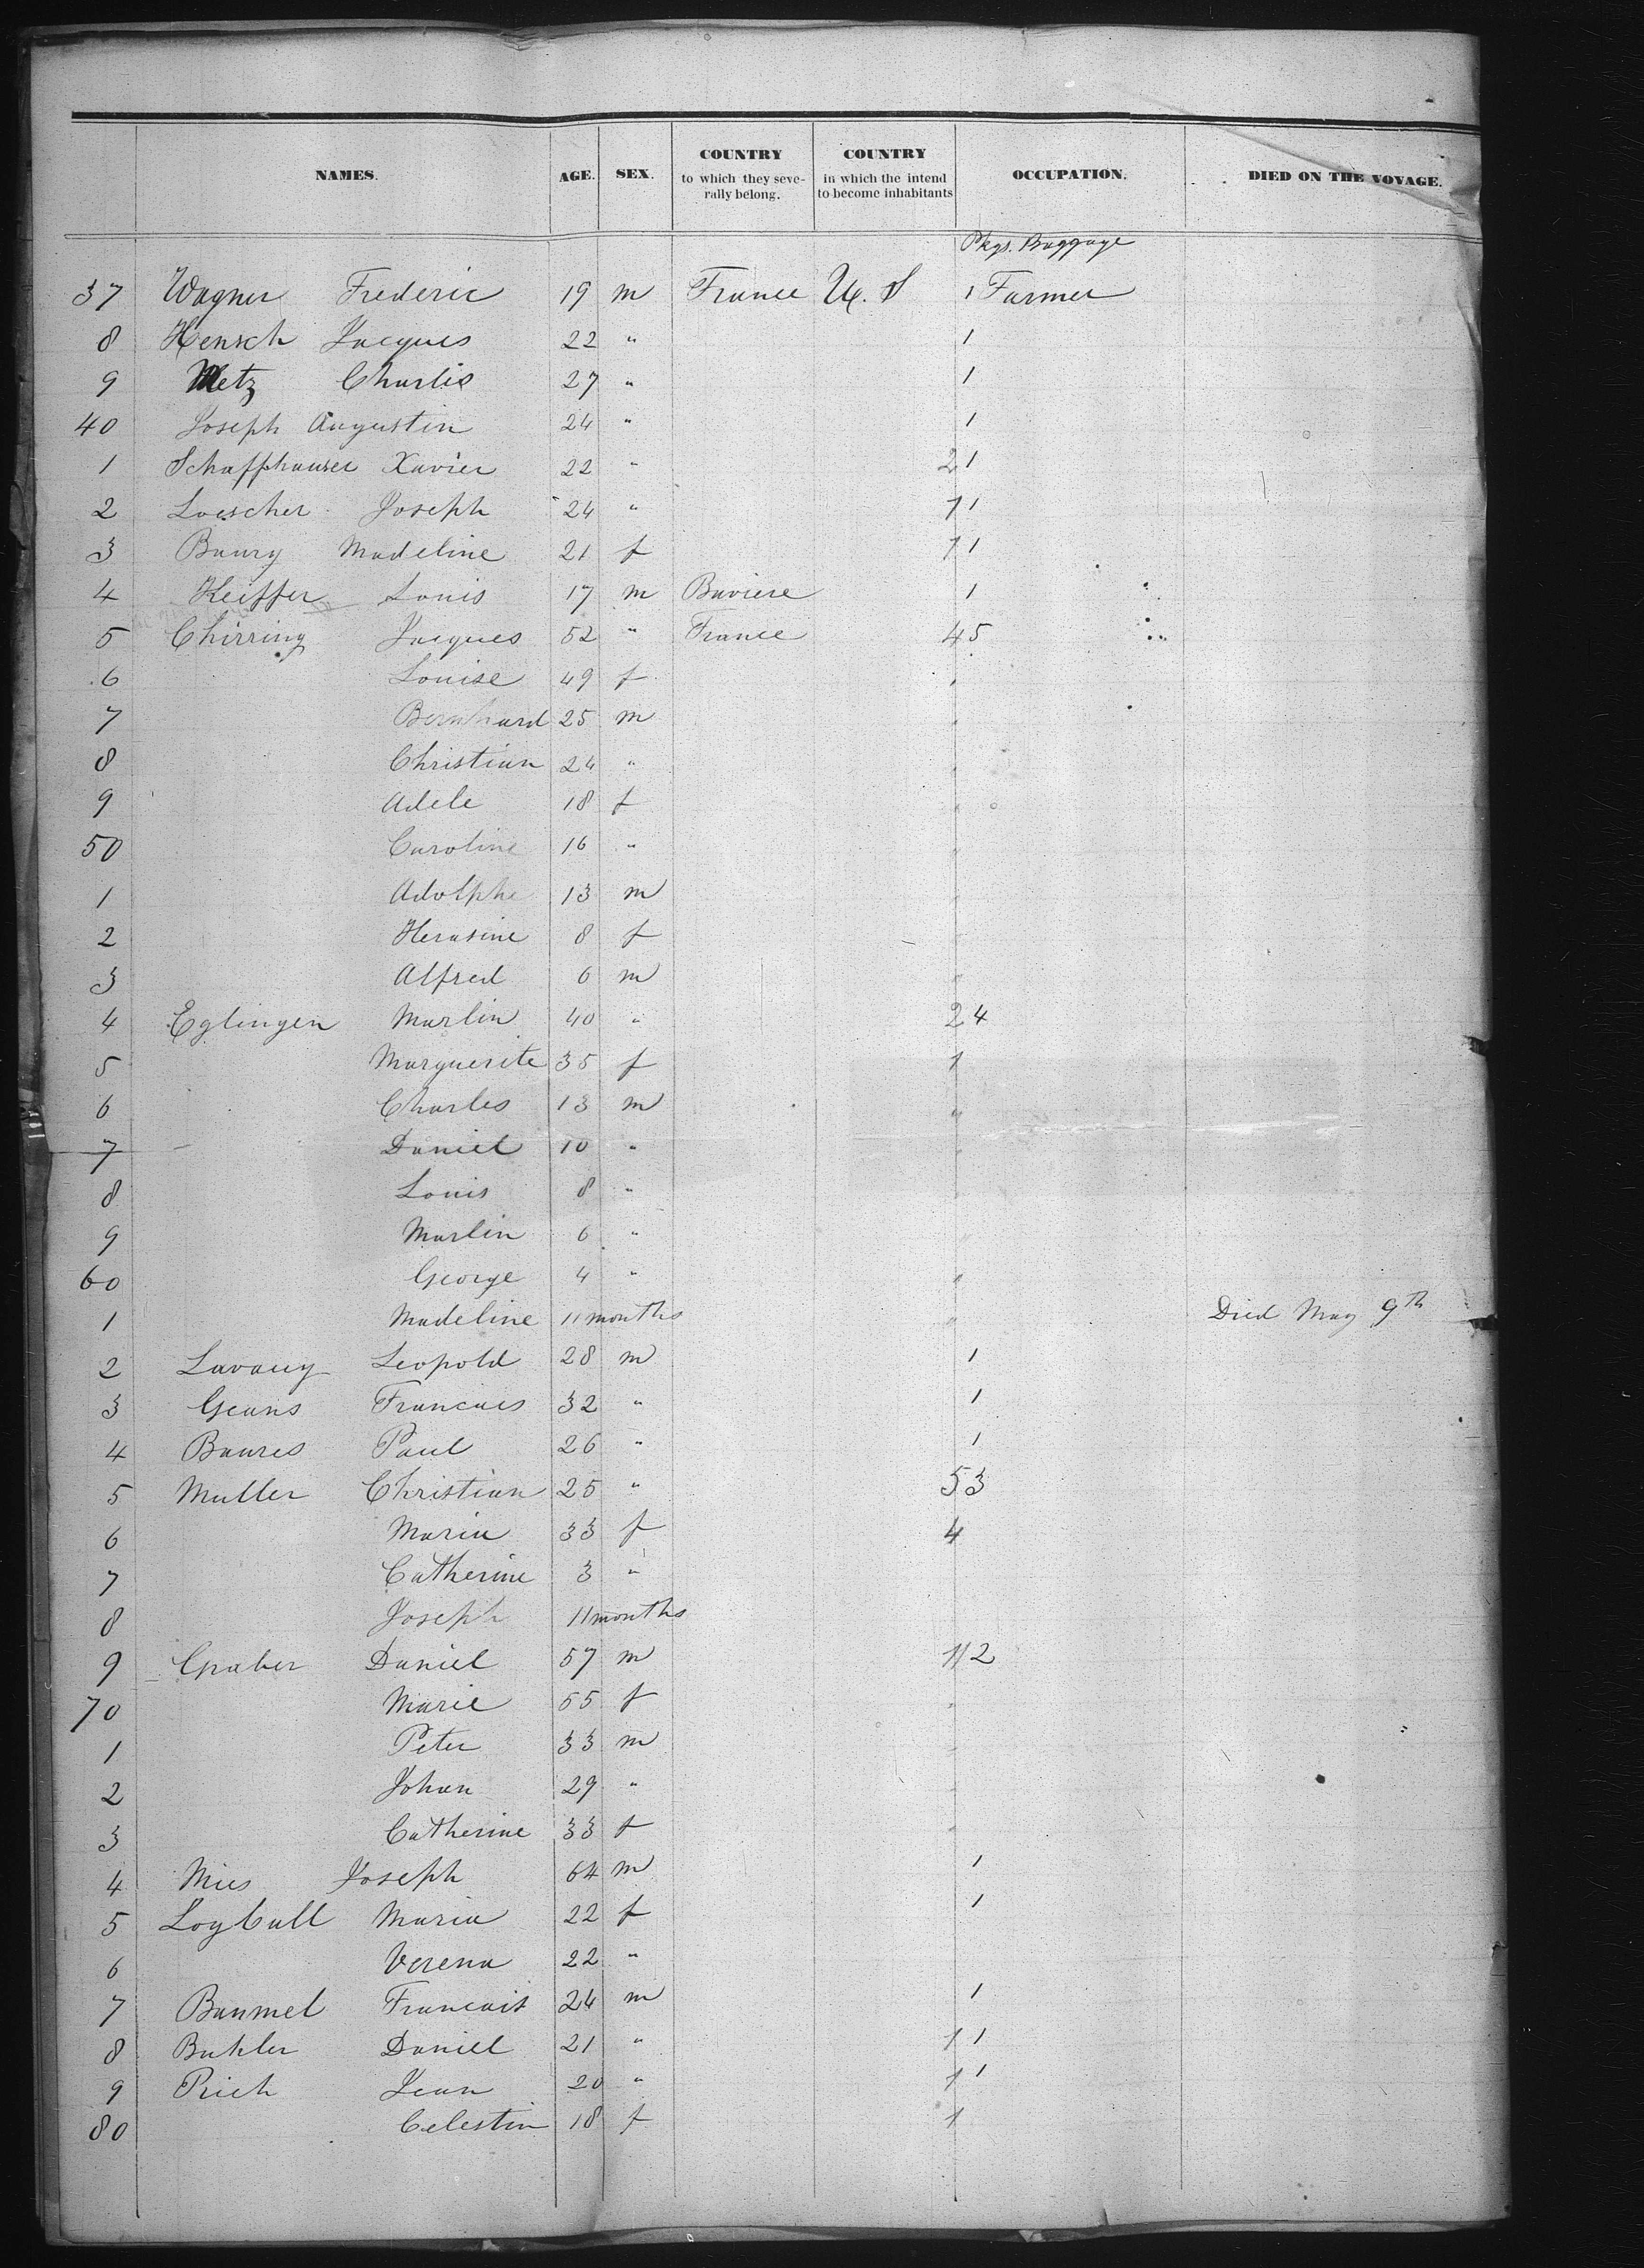 NAMES. AGE. SEX. COUNTRY to which they seve- rally belong. COUNTRY in which the intend to become inhabitants OCCUPATION. DIED ON THE VOYAGE.
Pkgs. Baggage
37 Wagner Frederic 19 m France U. S 1 Farmer
8 Hensch Jacques 22 " 1
9 Metz Charles 27 " 1
40 Joseph Augustin 24 " 1
1 Schaffhauser Xavier 22 " 21
2 Loescher Joseph 24 " 11
3 Baury Madeline 21 f 11
4 Keiffer Louis 17 m Baviere 1
5 Chirring Jacques 52 " France 45
6 Louise 49 f
7 Bernhard 25 m "
8 Christian 24 " "
9 Adele 18 f "
50 Caroline 16 " "
1 Adolphe 13 m "
2 Herasine 8 f "
3 Alfred 6 m "
4 Eglingen Martin 40 " 24
5 Marguerite 35 f 1
6 Charles 13 m "
7 Daniel 10 " "
8 Louis 8 " "
9 Martin 6 " "
60 George 4 " "
1 Madeline 11 months " Died May 9th
2 Lavauy Leopold 28 m 1
3 Geans Francais 32 " 1
4 Baures Paul 26 " 1
5 Muller Christian 25 " 53
6 Maria 33 f 4
7 Catherine 3 "
8 Joseph 11 months
9 Graber Daniel 57 m 112
70 Marie 55 f "
1 Peter 33 m "
2 Johan 29 " "
3 Catherine 33 f "
4 Mies Joseph 64 m 1
5 Loyball Maria 22 f 1
6 Verena 22 "
7 Baumel Francais 24 m 1
8 Buhler Daniel 21 " 11
9 Rich Jean 20 " 11
80 Celestin 18 f 1